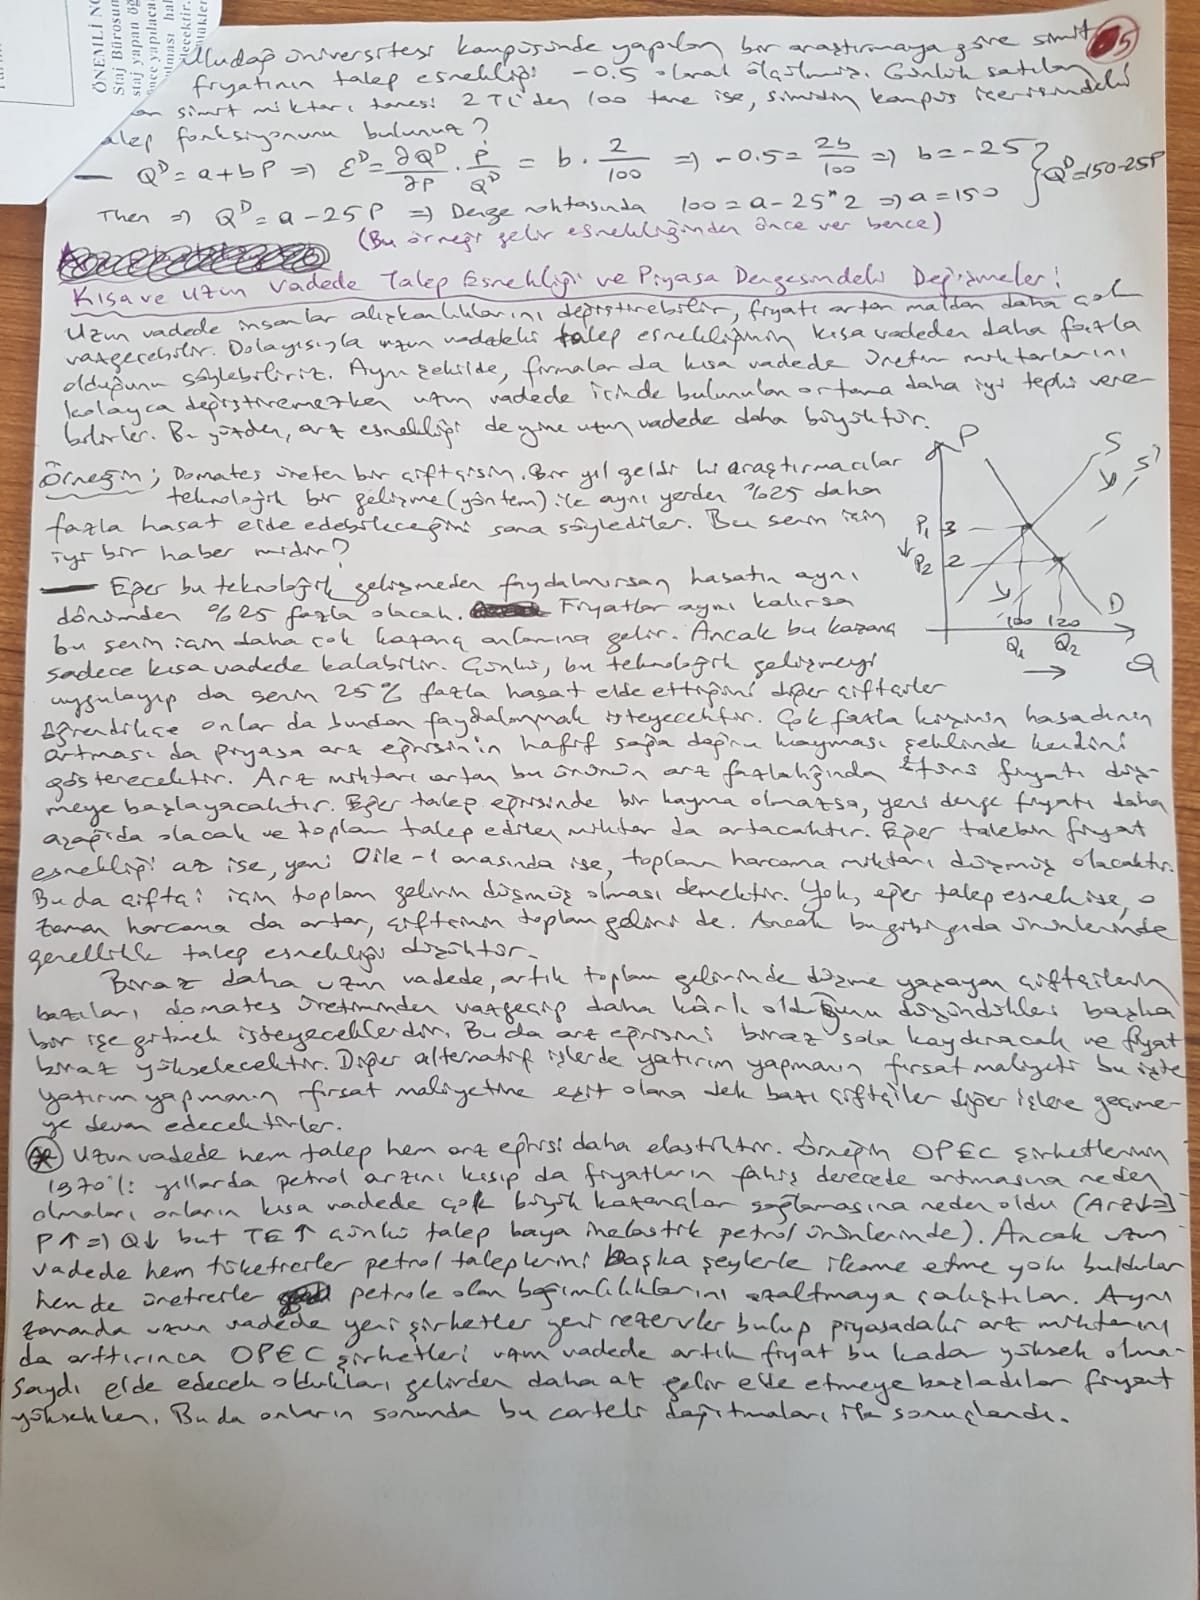 ÖNEMLİ NO
Staj Bürosun
staj yapan öğ
önce yapılaca
Uludağ üniversitesi kampüsünde yapılan bir araştırmaya göre simit
fiyatının talep esnekliği -0.5 olarak ölçülmüş. Günlük satılan
simit miktarı tanesi 2 TL'den 100 tane ise, simidin kampüs içerisindeki
alep fonksiyonunu bulunuz?
— Q^D = a + bP => ε^D = ∂Q^D/∂P · P/Q^D = b · 2/100 => -0.5 = 2b/100 => b = -25 } Q^D = 150-25P
Then => Q^D = a - 25P => Denge noktasında 100 = a - 25*2 => a = 150
(Bu örneği gelir esnekliğinden önce ver bence)
Kısa ve Uzun Vadede Talep Esnekliği ve Piyasa Dengesindeki Değişmeler:
Uzun vadede insanlar alışkanlıklarını değiştirebilir, fiyatı artan maldan daha çok
vazgeçebilir. Dolayısıyla uzun vadedeki talep esnekliğinin kısa vadeden daha fazla
olduğunu söylebiliriz. Aynı şekilde, firmalar da kısa vadede üretim miktarlarını
kolayca değiştiremezken uzun vadede içinde bulunulan ortama daha iyi tepki vere-
bilirler. Bu yüzden, arz esnekliği de yine uzun vadede daha büyüktür.
Örneğin; Domates üreten bir çiftçisin. Bir yıl geldi ki araştırmacılar
teknolojik bir gelişme (yöntem) ile aynı yerden %25 daha
fazla hasat elde edebileceğini sana söylediler. Bu senin için
iyi bir haber midir?
P
S
S'
P1 3
P2 2
D
100 120
Q1 Q2
Q
— Eğer bu teknolojik gelişmeden faydalanırsan hasatın aynı
dönümden %25 fazla olacak. Fiyatlar aynı kalırsa
bu senin için daha çok kazanç anlamına gelir. Ancak bu kazanç
sadece kısa vadede kalabilir. Çünkü, bu teknolojik gelişmeyi
uygulayıp da senin 25% fazla hasat elde ettiğini diğer çiftçiler
öğrendikçe onlar da bundan faydalanmak isteyecektir. Çok fazla kişinin hasadının
artması da piyasa arz eğrisinin hafif sağa doğru kayması şeklinde kendini
gösterecektir. Arz miktarı artan bu ürünün arz fazlalığından ötürü fiyatı düş-
meye başlayacaktır. Eğer talep eğrisinde bir kayma olmazsa, yeni denge fiyatı daha
aşağıda olacak ve toplam talep edilen miktar da artacaktır. Eğer talebin fiyat
esnekliği az ise, yani 0 ile -1 arasında ise, toplam harcama miktarı düşmüş olacaktır.
Bu da çiftçi için toplam gelirin düşmüş olması demektir. Yok, eğer talep esnek ise, o
zaman harcama da artar, çiftçinin toplam geliri de. Ancak bu gibi gıda ürünlerinde
genellikle talep esnekliği düşüktür.
Biraz daha uzun vadede, artık toplam gelirinde düşme yaşayan çiftçilerin
bazıları domates üretiminden vazgeçip daha kârlı olduğunu düşündükleri başka
bir işe girmek isteyeceklerdir. Bu da arz eğrisini biraz sola kaydıracak ve fiyat
biraz yükselecektir. Diğer alternatif işlerde yatırım yapmanın fırsat maliyeti bu işte
yatırım yapmanın fırsat maliyetine eşit olana dek bazı çiftçiler diğer işlere geçme-
ye devam edecektirler.
* Uzun vadede hem talep hem arz eğrisi daha elastiktir. Örneğin OPEC şirketlerinin
1970'li yıllarda petrol arzını kısıp da fiyatların fahiş derecede artmasına neden
olmaları onların kısa vadede çok büyük kazançlar sağlamasına neden oldu (Arz↓=>
P↑ => Q↓ but TE↑ çünkü talep baya inelastik petrol ürünlerinde). Ancak uzun
vadede hem tüketiciler petrol taleplerini başka şeylerle ikame etme yolu buldular
hem de üreticiler petrole olan bağımlılıklarını azaltmaya çalıştılar. Aynı
zamanda uzun vadede yeni şirketler yeni rezervler bulup piyasadaki arz miktarını
da arttırınca OPEC şirketleri uzun vadede artık fiyat bu kadar yüksek olma-
saydı elde edecek oldukları gelirden daha az gelir elde etmeye başladılar fiyat
yüksekken. Bu da onların sonunda bu carteli dağıtmaları ile sonuçlandı.